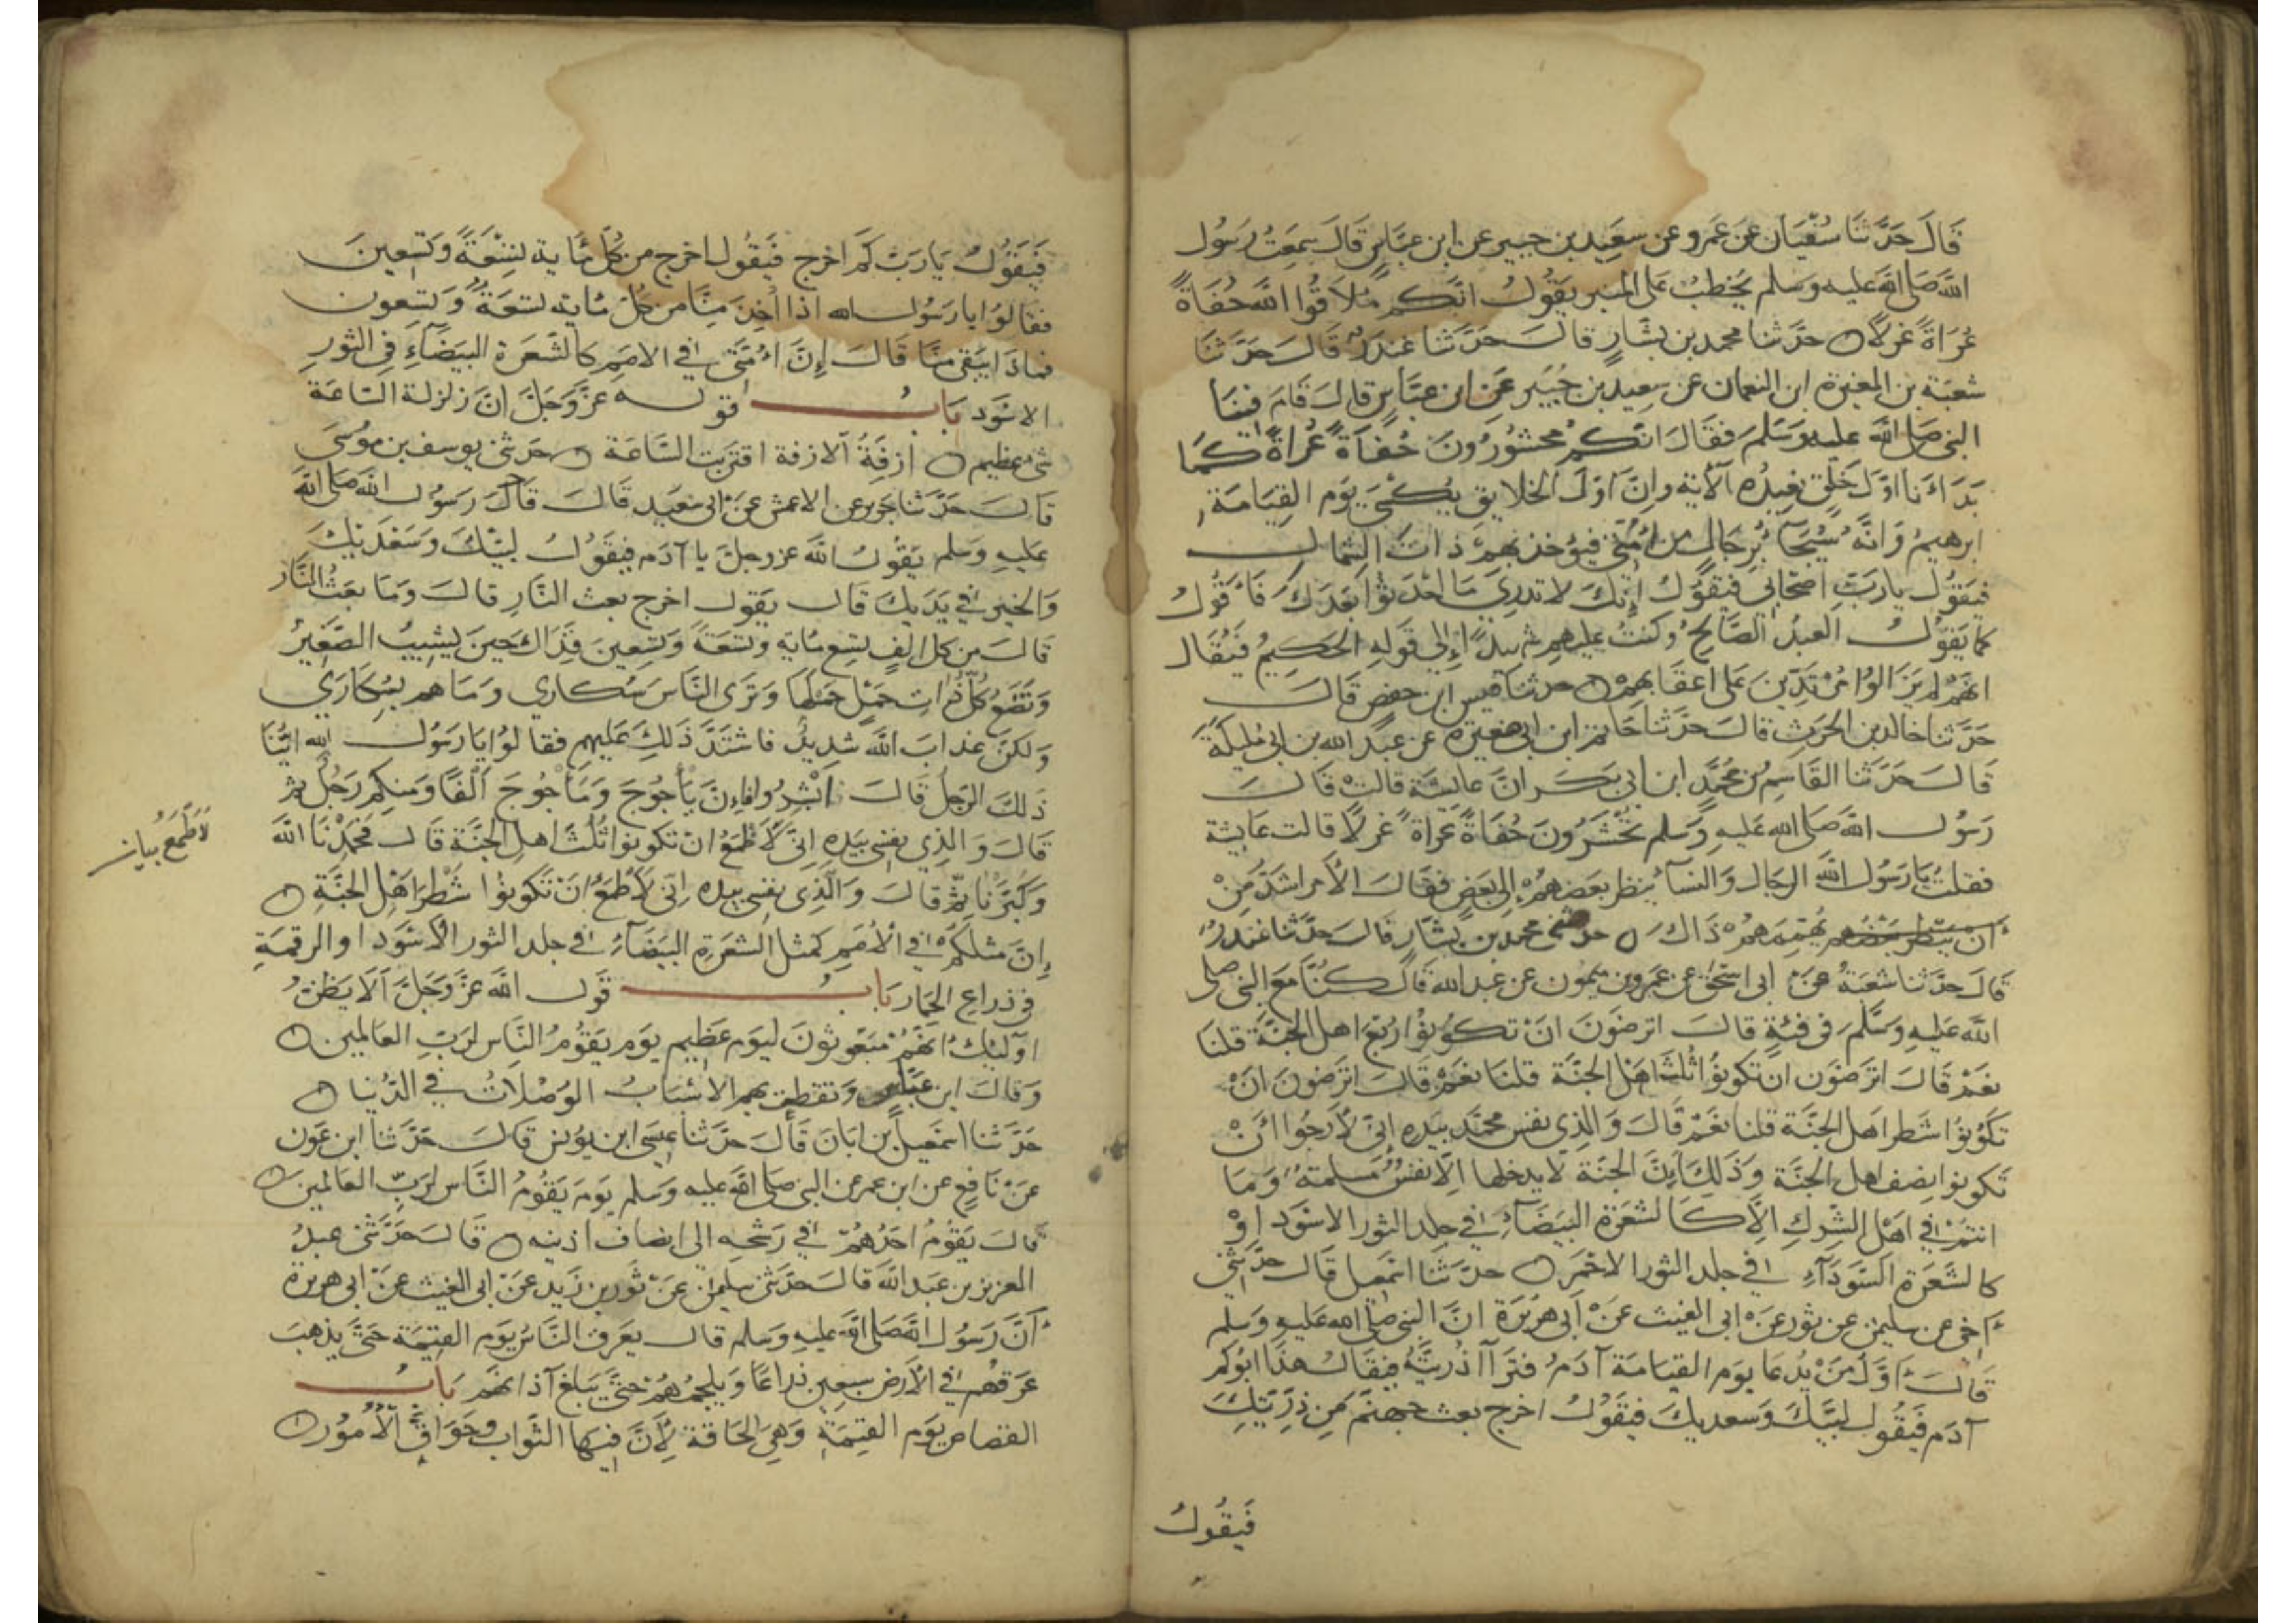 قَالَ حَدَّثَنَا سُفْيَان عَن عَمرو عن سعيد بن جبير عن ابن عبّاس قَالَ سَمِعتُ رَسُول
الله صَلى الله عليه وسلم يخطبُ على المنبر يقُولُ انّكم مُلَاقُوا الله حُفَاةً
عُرَاةً غرلًا حدّثنا محمد بن بشّارٍ قالَ حدّثنا غندرٌ قَالَ حَدّثنَا
شعبَة بن المغيرة ابن النعمان عن سعيد بن جُبَير عَن ابن عبّاسٍ قال قَامَ فينَا
النبى صلى الله عليه وسَلم فقَالَ انّكم محشُورُونَ حُفَاةً عُرَاةً كمَا
بَدَأنَا اوّلَ خَلقٍ نعِيدُه الآية وانّ اوّلَ الخلايق يُكسَى يَوم القِيَامَة
ابرهيمُ وَانّهُ سيُجَآ بُرجَالٍ من امّتى فيُوخذ بهم ذاتَ الشمال
فيَقُول ياربّ اصحابى فيقُولُ إنّكَ لا تدرى مَا احْدَثُوا بَعدَكَ فَأقُولُ
كما يقُولُ العبدُ الصَّالحُ وكنتُ عليهم شهيداً إلى قوله الحكيمُ فيُقَال
انّهُم لم يَزَالوا مُرتَدّينَ عَلى اعقَابِهِمْ حدثنا قيس ابن حفصٍ قَالَ
حَدّثنا خالد بن الحرث قالَ حَدّثنا حَاتم ابن ابى صغيرة عن عبد الله بن ابى مُليكة
قَالَ حَدّثنا القَاسِم بن مُحمَّد ابن ابى بَكر انّ عايشَة قالتْ قَالَ
رَسُول الله صَلى الله عَليهِ وَسَلم تحْشَرُونَ حُفَاةً عرَاة غرلًا قالت عَايشة
فقلتُ يا رَسُول الله الرجَال وَالنسآ ينظر بعَضهُمْ الى بَعضٍ فقَالَ الأمر اشدّ مِنْ
أنْ يُهمّهُمْ ذَاكَ حدثنى محمد بن بشّار قالَ حدّثنا غندرٌ
قالَ حدّثنا شعبَةُ عن ابى اسحٰق عن عَمرو بن ميمُون عن عبد الله قَال كنّا مَع النبى صلى
الله عَليه وسَلم فى قبةٍ قالَ اترضَونَ انْ تكونوُا رُبعَ اهل الجنّة قلنَا
نَعَمْ قَالَ اترَضوَن ان تكونوُا ثُلثَ اهَل الجنّة قلنَا نعَمْ قَالَ اترَضونَ انْ
تكوُنُوا شَطر اهَل الجنّة قلنا نعَمْ قَالَ وَالّذِى نفس محمّد بيَدِه إنى لأرجُوا أنْ
تَكونوا نِصفَ اهل الجَنّة وَذَلكَ انّ الجنّة لا يدخلها الّا نفسٌ مُسلمةٌ وَمَا
انتم فى اهَل الشّركِ الّا كَالشعرَة البَيضَآء فى جلد الثور الاسوَد اوْ
كالشَعَرة السَّودَآءِ فى جلد الثور الاحْمَر حدّثَنا اسمعيل قالَ حدّثنى
أخى عن سليمٰن عن ثور عَنْ ابى الغيث عَنْ أبى هُريرَة انّ النبى صلى الله عَليهِ وسَلم
قالَ أوّلُ مَنْ يُدعَا يوَم القيامَة آدَمُ فترَآا ذُريّتُهُ فيقَالُ هذَا ابُوكم
آدَم فَيَقُول لبيّكَ وَسعديكَ فيقُوْلُ اخرج بعث جهنّم مَن ذرّيتِكَ
فَيقُولُ
فيَقوُلُ يَا رَبّ كَم اخرج فيَقُول اخرج من كُلّ مَايةٍ تسْعَةً وَتسعينَ
فقالوُا يا رَسُول الله اذا اُخِذَ مِنّا من كُلّ مَاية تسعَةٌ وَتسعون
فماذَا يَبقى منّا قَالَ إنّ امّتَى فى الامَم كالشعَرَة البَيضَآءِ فى الثورِ
الاسْوَد بَابُ قوله عزّ وَجَلّ انّ زلزلة السّاعَة
شىءٌ عَظيم ازفَةُ الازفة اقتربت السَّاعَة حدثنى يوسف بن مُوسَى
قَالَ حَدّثنا جَرير عن الاعمش عَنْ ابى سَعِيد قَالَ قَالَ رَسُول الله صَلى الله
عَليهِ وَسَلم يَقُول الله عز وجلّ يا آدَم فيَقُولُ لبيّكَ وَسَعْدَيكَ
وَالخير فى يَدَيكَ قَال يَقول اخرج بعث النّارِ قالَ وَمَا بَعثُ النَّار
قَالَ من كل الفٍ تسِع مَاية وتسعَة وَتسِعينَ فذَاكَ حينَ يشيبُ الصّغيرُ
وَتَضَعُ كلّ ذَاتِ حَمْلٍ حَملَها وَتَرَى النَّاسَ سُكارى وَمَا هم بسُكَارَى
وَلكنّ عذابَ الله شدِيدٌ فاشتَدّ ذَلكِ عَليهم فقالوُا يا رَسُول الله ايُّنَا
ذَلكَ الرَجلُ قَالَ ابْشِرُوا فإنّ يَأجُوجَ وَمَأجُوجَ ألفًا وَمنكم رَجُلٌ ثم
قَالَ وَالذِى نفسى بيَدِهِ انّى لَأطْمَعُ انْ تكونوُا ثُلُثَ اهلِ الجَنّة قَال فحَمِدْنَا الله
وَكَبّرْنَا ثمّ قالَ وَالّذِى نفسِى بيَدِه اِنّى لَأطْمَعُ انَ تَكونوُا شَطْرَ اهْلِ الجَنّةِ
إنّ مَثلكمْ فى الأمَمِ كمثل الشعَرَةِ البَيضَآءِ فى جلد الثور الاسْوَد او الرقمَة
فى ذراعِ الحمَار بَابُ قَول الله عَزّ وَجَلّ ألَا يَظنُّ
اولئِكَ أنّهُمْ مَبعُوثونَ ليَوم عَظِيم يَوَم يَقوُمُ النَّاس لرَبّ العَالمين
وَقالَ ابن عَبّاس وَتقطّعت بهم الاسْبَابُ الوُصْلاتُ فى الدُّنيا
حَدّثنا اسمَعيل بن ابَانَ قَالَ حَدّثنا عيسَى ابن يوُنس قَالَ حَدّثنا ابن عَون
عَنْ نَافعٍ عَن ابن عمر عَن النبى صلى الله عليه وَسلم يَوَم يَقُومُ النَّاس لرَبّ العَالمين
قَالَ يَقوُمُ احَدُهُمْ فى رَشحِه الى انصَاف اذنيه قَالَ حَدّثنى عبدُ
العزيز بن عَبَد الله قَالَ حدّثنى سليمٰن عَنْ ثَور بن زَيد عَنْ ابى الغيث عَنْ ابى هريرة
أنَّ رَسُول الله صَلى الله عَليهِ وَسَلم قال يعرَق النّاسُ يَوم القيٰمَة حَتّى يذهبَ
عَرقُهم فى الأرَض سَبعين ذراعًا وَيلجمُهُمْ حتّى يَبلغ آذانهم بَابُ
القصاص يَوَم القيٰمَة وَهى الحَاقة لِأنّ فيهَا الثَواب وحَوَاقّ الأمُور
لَأطْمَعُ بيان